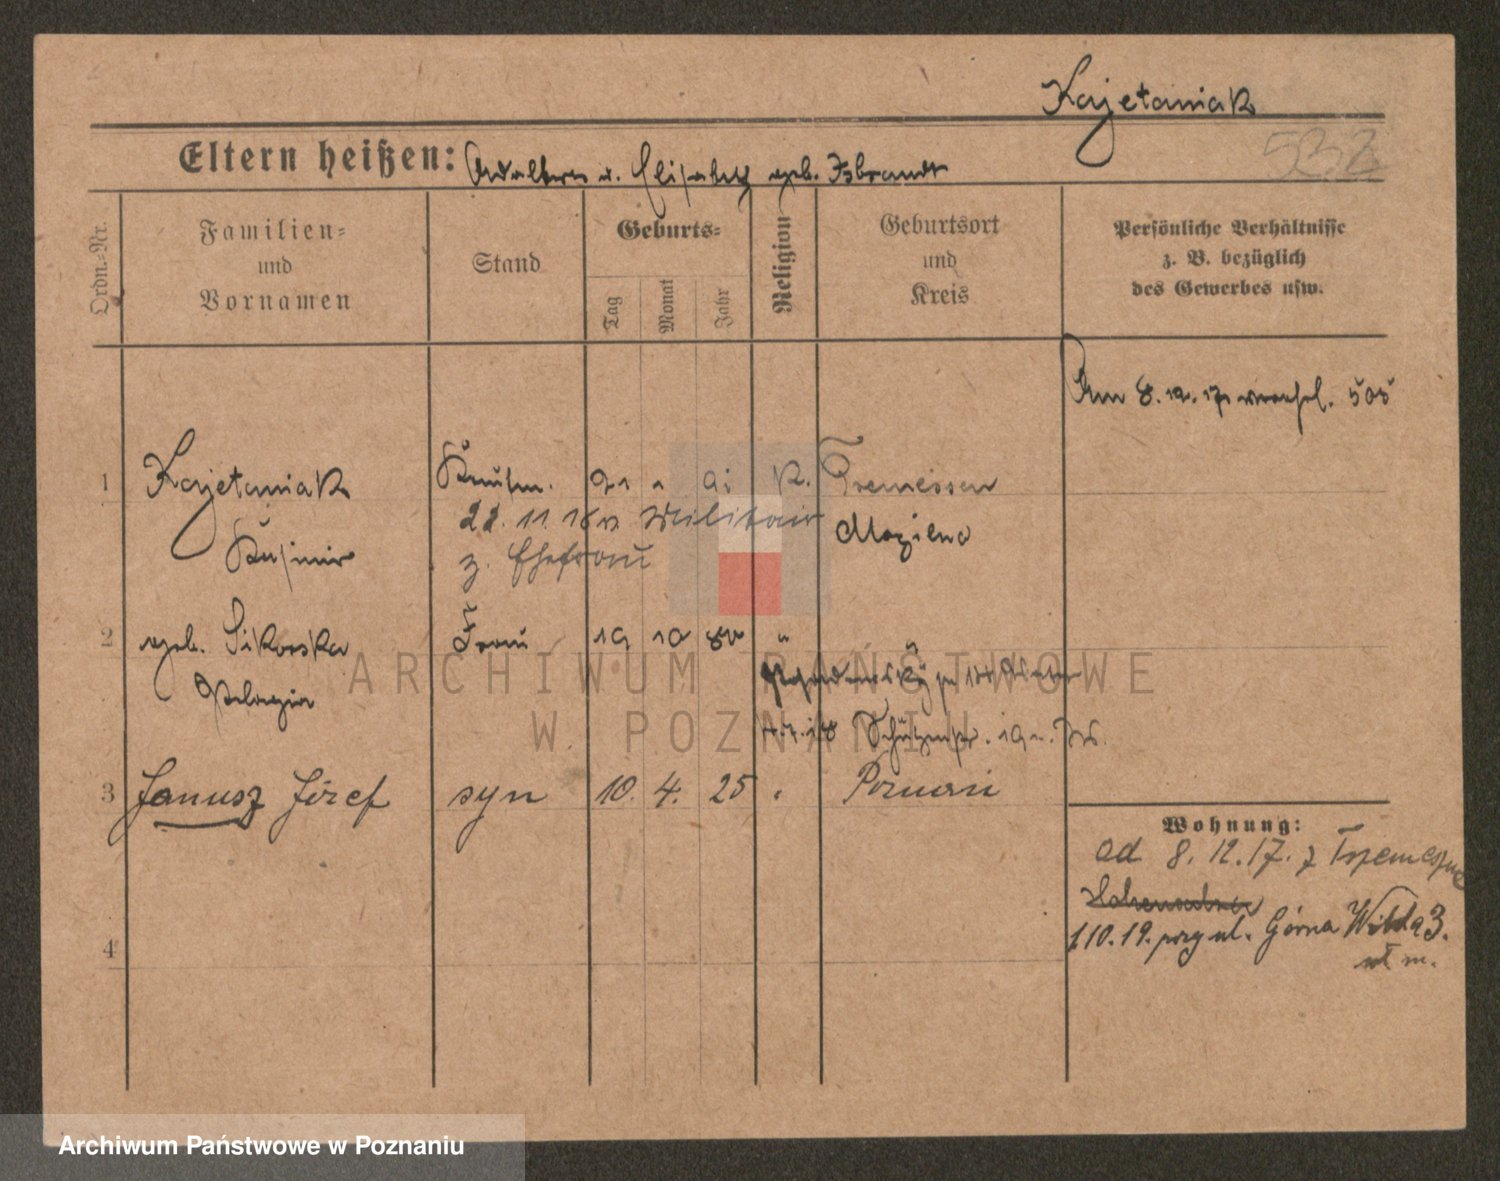 Kajetaniak
532
Eltern heißen: Adalbert u. Elisabeth geb. Isbrandt
Ordn.-Nr.
Familien-
und
Vornamen
Stand
Geburts-
Tag
Monat
Jahr
Religion
Geburtsort
und
Kreis
Persönliche Verhältnisse
z. B. bezüglich
des Gewerbes usw.
Am 8.12.17 505
1 Kajetaniak Kaufm. 21 1 91 K. Tremessen
22. 11. Militair
Kasimir z. Ehefrau Mogilno
2 geb. Sikorska Frau 19 10 "
Pelagia
3 Janusz Józef syn 10. 4. 25 " Poznań
Wohnung:
od 8. 12. 17. z Trzemeszna
110. 19. przy ul. Górna Wilda 3.
m.
4
ARCHIWUM PAŃSTWOWE
W POZNANIU
Archiwum Państwowe w Poznaniu